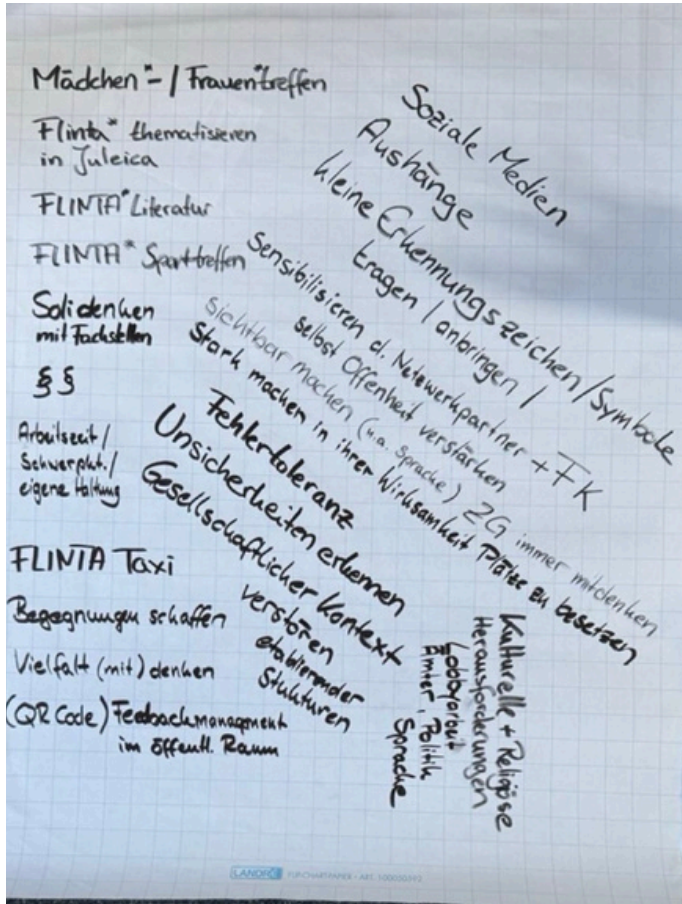 Mädchen*-/Frauentreffen
Flinta* thematisieren
in Juleica
FLINTA* Literatur
FLINTA* Sporttreffen
Soli denken
mit Fachstellen
§§
Arbeitszeit/
Schwerpkt./
eigene Haltung
FLINTA Taxi
Begegnungen schaffen
Vielfalt (mit) denken
(QR Code) Feedbackmanagment
im öffentl. Raum
Soziale Medien
Aushänge
kleine Erkennungszeichen/Symbole
tragen / anbringen /
Sensibilisieren d. Netzwerkpartner + FK
selbst Offenheit verstärken
sichtbar machen (u.a. Sprache) ZG immer mitdenken
Stark machen in ihrer Wirksamkeit Plätze zu besetzen
Fehlertoleranz
Unsicherheiten erkennen
Gesellschaftlicher Kontext
verstören
etablierender
Stukturen
Kulturelle + Religiöse
Herausforderungen
Lobbyarbeit
Ämter, Politik
Sprache
LANDRÉ FLIPCHARTPAPIER - ART. 100050592